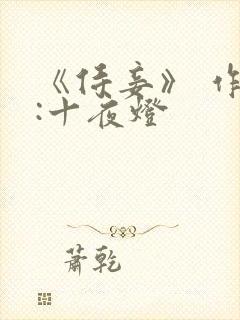 《侍妾》 作
:十夜燈
蕭乾